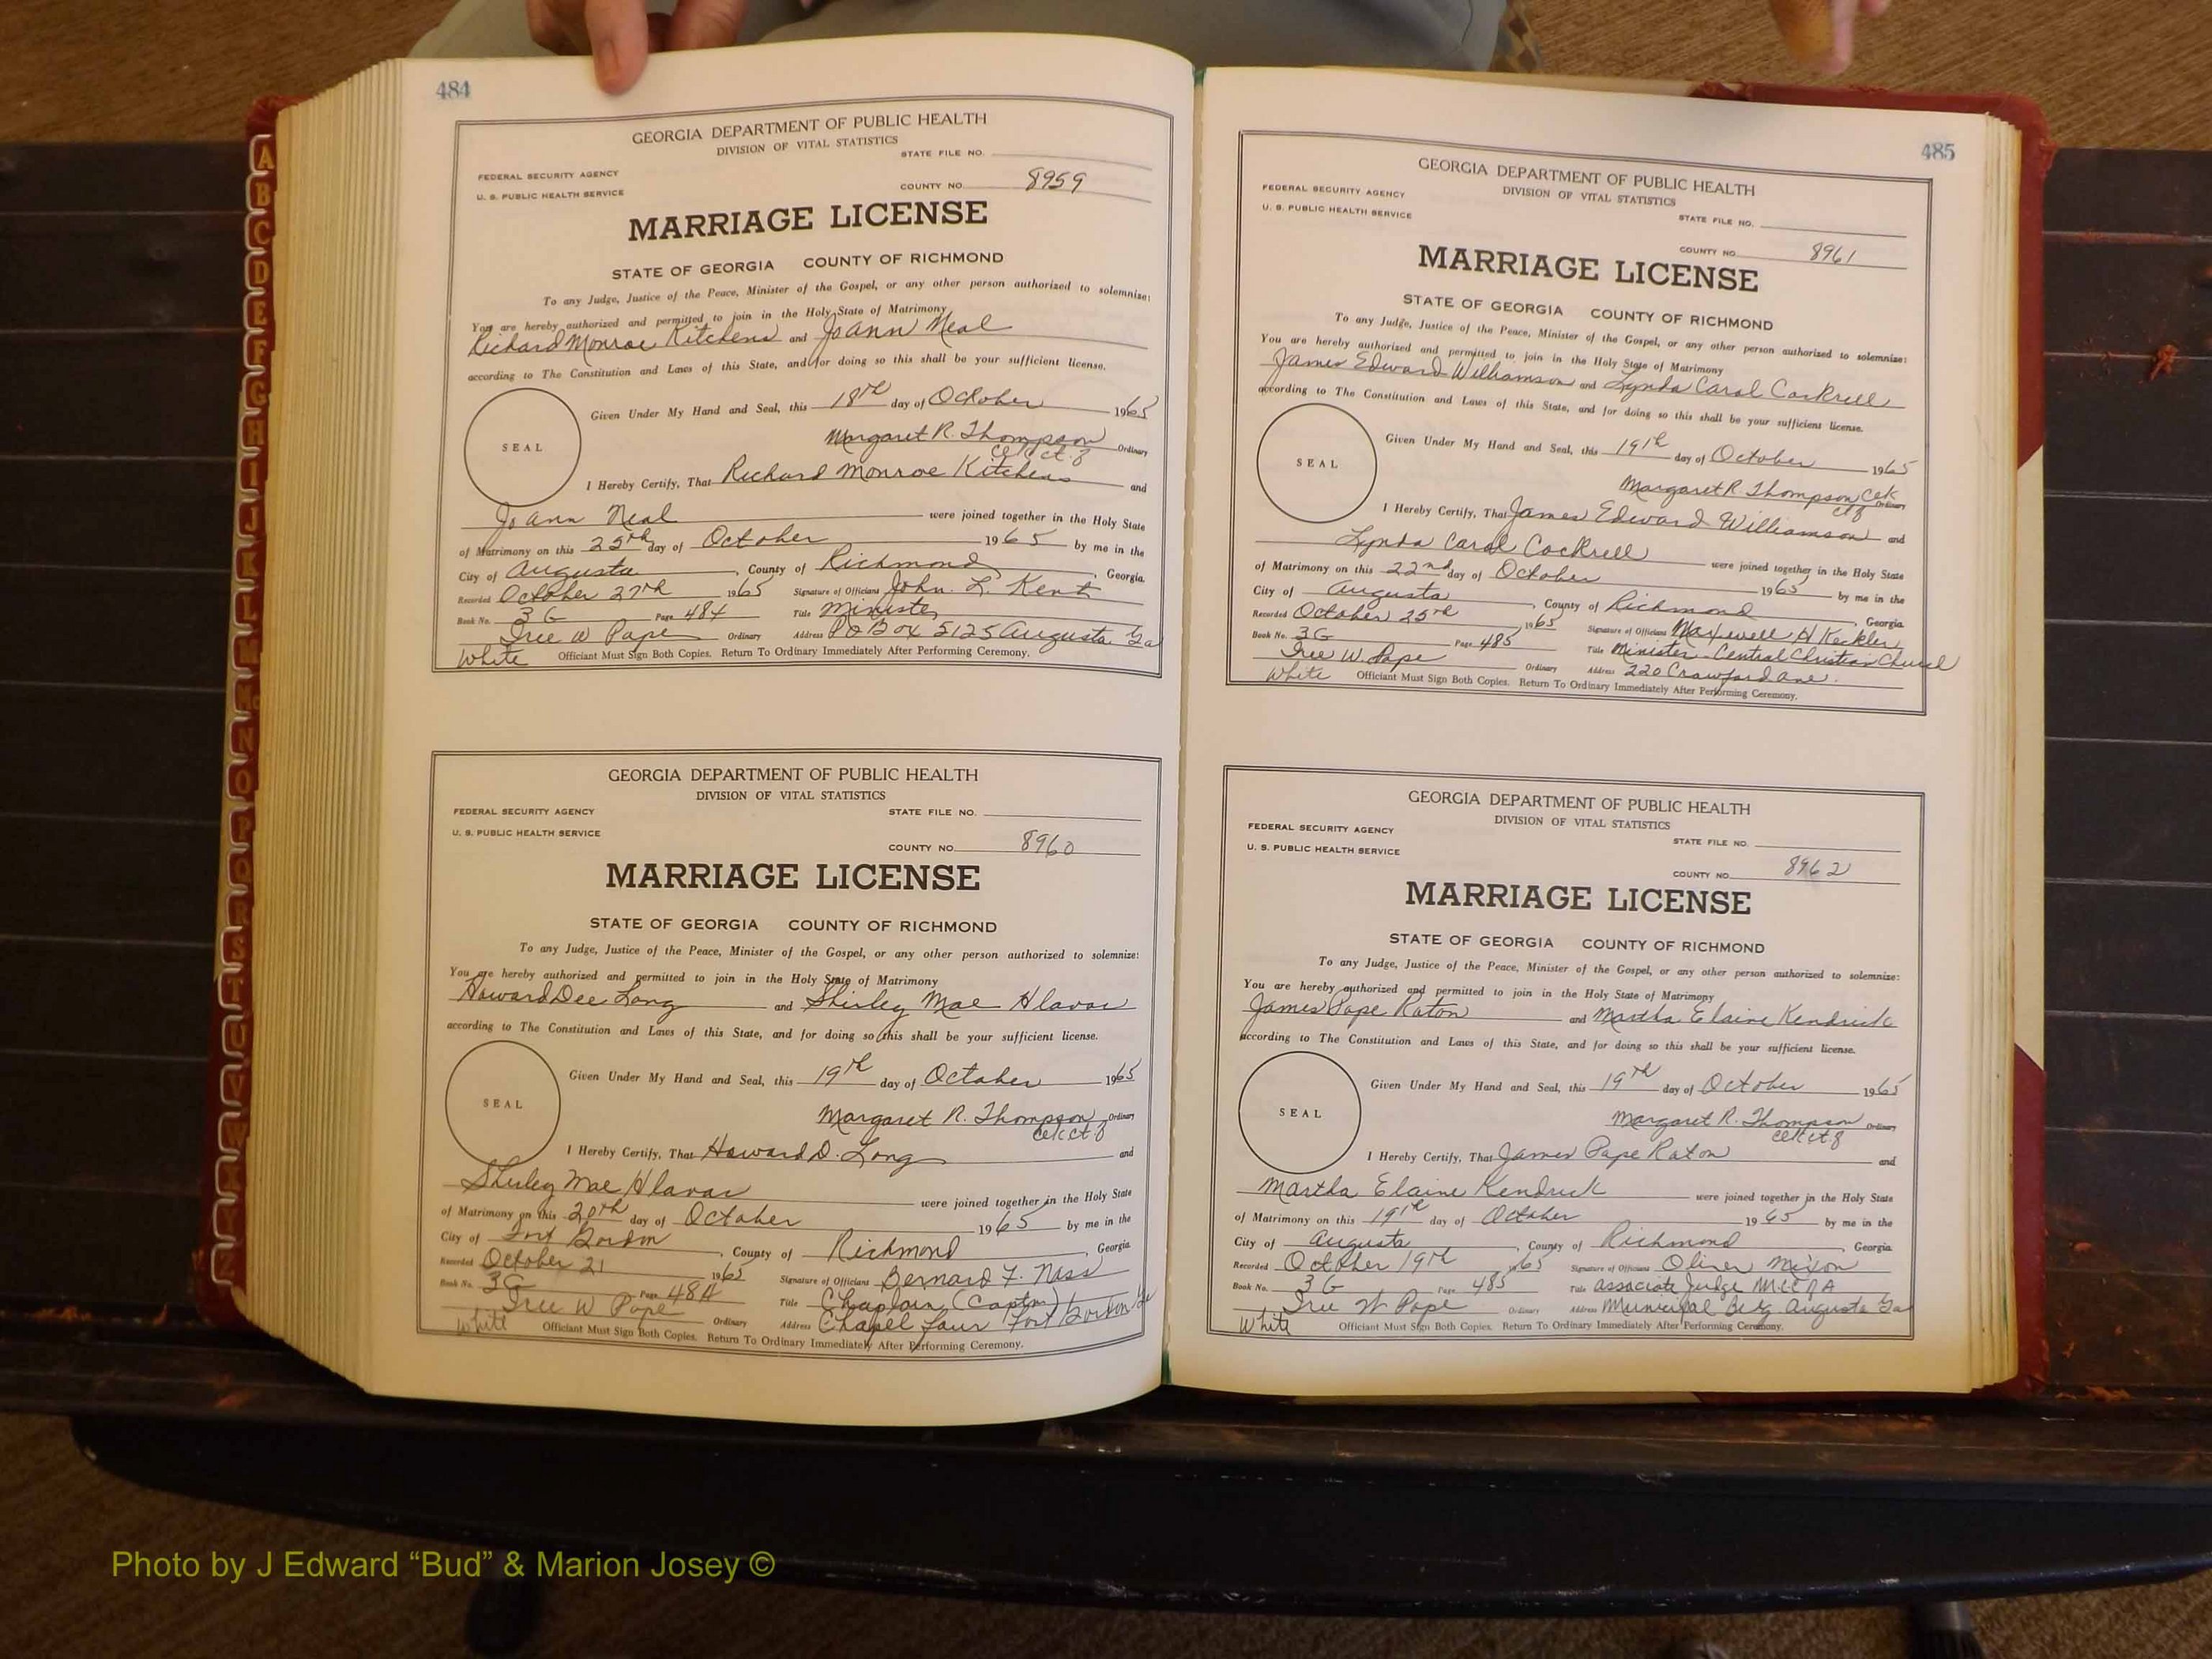 A
B
C
D
E
F
G
H
I
J
K
L
M
Mc
N
O
P
Q
R
S
T
U
V
W
484
GEORGIA DEPARTMENT OF PUBLIC HEALTH
DIVISION OF VITAL STATISTICS
STATE FILE NO.
FEDERAL SECURITY AGENCY
U. S. PUBLIC HEALTH SERVICE
COUNTY NO. 8959
MARRIAGE LICENSE
STATE OF GEORGIA COUNTY OF RICHMOND
To any Judge, Justice of the Peace, Minister of the Gospel, or any other person authorized to solemnize:
You are hereby authorized and permitted to join in the Holy State of Matrimony
Richard Monroe Kitchens and JoAnn Neal
according to The Constitution and Laws of this State, and for doing so this shall be your sufficient license.
SEAL
Given Under My Hand and Seal, this 18th day of October 1965
Margaret R. Thompson Ordinary
I Hereby Certify, That Richard Monroe Kitchens and
JoAnn Neal were joined together in the Holy State
of Matrimony on this 25th day of October 1965 by me in the
City of Augusta, County of Richmond, Georgia.
Recorded October 27th 1965 Signature of Officiant John. L. Kent
Book No. 3G Page 484 Title Minister
W Pape Ordinary Address PO Box 5125 Augusta Ga
White Officiant Must Sign Both Copies. Return To Ordinary Immediately After Performing Ceremony.
GEORGIA DEPARTMENT OF PUBLIC HEALTH
DIVISION OF VITAL STATISTICS
FEDERAL SECURITY AGENCY STATE FILE NO.
U. S. PUBLIC HEALTH SERVICE
COUNTY NO. 8960
MARRIAGE LICENSE
STATE OF GEORGIA COUNTY OF RICHMOND
To any Judge, Justice of the Peace, Minister of the Gospel, or any other person authorized to solemnize:
You are hereby authorized and permitted to join in the Holy State of Matrimony
Howard Dee Long and Shirley Mae
according to The Constitution and Laws of this State, and for doing so this shall be your sufficient license.
SEAL
Given Under My Hand and Seal, this 19th day of October 1965
Margaret R. Thompson Ordinary
I Hereby Certify, That Howard D. Long and
Shirley Mae were joined together in the Holy State
of Matrimony on this 20th day of October 1965 by me in the
City of Fort Gordon, County of Richmond, Georgia.
Recorded October 21 1965 Signature of Officiant Bernard F. Nass
Book No. 3G Page 484 Title Chaplain (Captn)
W Pape Ordinary Address Chapel Four Fort Gordon Ga
White Officiant Must Sign Both Copies. Return To Ordinary Immediately After Performing Ceremony.
485
GEORGIA DEPARTMENT OF PUBLIC HEALTH
DIVISION OF VITAL STATISTICS
FEDERAL SECURITY AGENCY
U. S. PUBLIC HEALTH SERVICE
STATE FILE NO.
COUNTY NO. 8961
MARRIAGE LICENSE
STATE OF GEORGIA COUNTY OF RICHMOND
To any Judge, Justice of the Peace, Minister of the Gospel, or any other person authorized to solemnize:
You are hereby authorized and permitted to join in the Holy State of Matrimony
James Edward Williamson and Lynda Carol Cockrell
according to The Constitution and Laws of this State, and for doing so this shall be your sufficient license.
SEAL
Given Under My Hand and Seal, this 19th day of October 1965
Margaret R. Thompson Clk Ordinary
I Hereby Certify, That James Edward Williamson and
Lynda Carol Cockrell were joined together in the Holy State
of Matrimony on this 22nd day of October 1965 by me in the
City of Augusta, County of Richmond, Georgia.
Recorded October 25th 1965 Signature of Officiant H Keckler
Book No. 3G Page 485 Title Minister - Central Christian Church
W. Pape Ordinary Address 220 Crawford ave.
White Officiant Must Sign Both Copies. Return To Ordinary Immediately After Performing Ceremony.
GEORGIA DEPARTMENT OF PUBLIC HEALTH
DIVISION OF VITAL STATISTICS
FEDERAL SECURITY AGENCY
U. S. PUBLIC HEALTH SERVICE
STATE FILE NO.
COUNTY NO. 8962
MARRIAGE LICENSE
STATE OF GEORGIA COUNTY OF RICHMOND
To any Judge, Justice of the Peace, Minister of the Gospel, or any other person authorized to solemnize:
You are hereby authorized and permitted to join in the Holy State of Matrimony
James Pope Raton and Martha Elaine Kendrick
according to The Constitution and Laws of this State, and for doing so this shall be your sufficient license.
SEAL
Given Under My Hand and Seal, this 19th day of October 1965
Margaret R. Thompson Ordinary
I Hereby Certify, That James Pope Raton and
Martha Elaine Kendrick were joined together in the Holy State
of Matrimony on this 19th day of October 1965 by me in the
City of Augusta, County of Richmond, Georgia.
Recorded October 19th 1965 Signature of Officiant Oliver Mixon
Book No. 3G Page 485 Title Associate Judge
W Pape Ordinary Address Municipal Bldg Augusta Ga
White Officiant Must Sign Both Copies. Return To Ordinary Immediately After Performing Ceremony.
Photo by J Edward “Bud” & Marion Josey ©